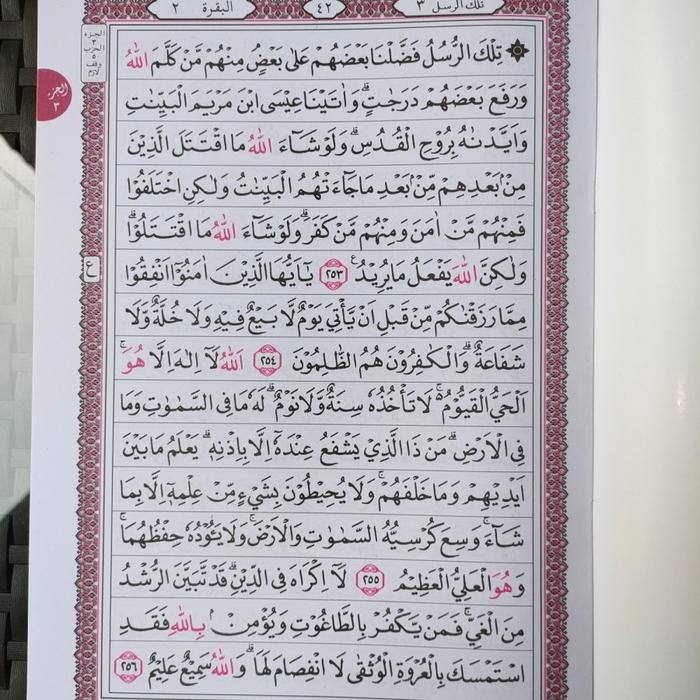 تلك الرسل ٣
٤٢
البقرة ٢
الجزء ٣ الحزب ٥ وقف لازم
الجزء ٣
تِلۡكَ الرُّسُلُ فَضَّلۡنَا بَعۡضَهُمۡ عَلٰى بَعۡضٍ‌ۘ مِنۡهُمۡ مَّنۡ كَلَّمَ اللّٰهُ
وَرَفَعَ بَعۡضَهُمۡ دَرَجٰتٍ‌ؕ وَاٰتَيۡنَا عِيۡسَى ابۡنَ مَرۡيَمَ الۡبَيِّنٰتِ
وَاَيَّدۡنٰهُ بِرُوۡحِ الۡقُدُسِ‌ؕ وَلَوۡ شَآءَ اللّٰهُ مَا اقۡتَتَلَ الَّذِيۡنَ
مِنۡۢ بَعۡدِهِمۡ مِّنۡۢ بَعۡدِ مَا جَآءَتۡهُمُ الۡبَيِّنٰتُ وَلٰكِنِ اخۡتَلَفُوۡا
فَمِنۡهُمۡ مَّنۡ اٰمَنَ وَمِنۡهُمۡ مَّنۡ كَفَرَ‌ؕ وَلَوۡ شَآءَ اللّٰهُ مَا اقۡتَتَلُوۡا
ع
وَلٰكِنَّ اللّٰهَ يَفۡعَلُ مَا يُرِيۡدُ ﴿۲۵۳﴾ يٰٓاَيُّهَا الَّذِيۡنَ اٰمَنُوۡٓا اَنۡفِقُوۡا
مِمَّا رَزَقۡنٰكُمۡ مِّنۡ قَبۡلِ اَنۡ يَّاۡتِىَ يَوۡمٌ لَّا بَيۡعٌ فِيۡهِ وَلَا خُلَّةٌ وَّلَا
شَفَاعَةٌ ‌ؕ وَالۡكٰفِرُوۡنَ هُمُ الظّٰلِمُوۡنَ ﴿۲۵۴﴾ اَللّٰهُ لَآ اِلٰهَ اِلَّا هُوَ ۚ
اَلۡحَىُّ الۡقَيُّوۡمُ ۚ لَا تَاۡخُذُهٗ سِنَةٌ وَّلَا نَوۡمٌ‌ؕ لَهٗ مَا فِى السَّمٰوٰتِ وَمَا
فِى الۡاَرۡضِ‌ؕ مَنۡ ذَا الَّذِىۡ يَشۡفَعُ عِنۡدَهٗۤ اِلَّا بِاِذۡنِهٖ‌ؕ يَعۡلَمُ مَا بَيۡنَ
اَيۡدِيۡهِمۡ وَمَا خَلۡفَهُمۡ‌ۚ وَلَا يُحِيۡطُوۡنَ بِشَىۡءٍ مِّنۡ عِلۡمِهٖۤ اِلَّا بِمَا
شَآءَ ۚ وَسِعَ كُرۡسِيُّهُ السَّمٰوٰتِ وَالۡاَرۡضَ‌ۚ وَلَا يَـُٔوۡدُهٗ حِفۡظُهُمَا ۚ
وَهُوَ الۡعَلِىُّ الۡعَظِيۡمُ ﴿۲۵۵﴾ لَآ اِكۡرَاهَ فِى الدِّيۡنِ‌ۙ قَدۡ تَّبَيَّنَ الرُّشۡدُ
مِنَ الۡغَىِّ‌ۚ فَمَنۡ يَّكۡفُرۡ بِالطَّاغُوۡتِ وَيُؤۡمِنۡۢ بِاللّٰهِ فَقَدِ
اسۡتَمۡسَكَ بِالۡعُرۡوَةِ الۡوُثۡقٰى لَا انْفِصَامَ لَهَا‌ؕ وَاللّٰهُ سَمِيۡعٌ عَلِيۡمٌ ﴿۲۵۶﴾